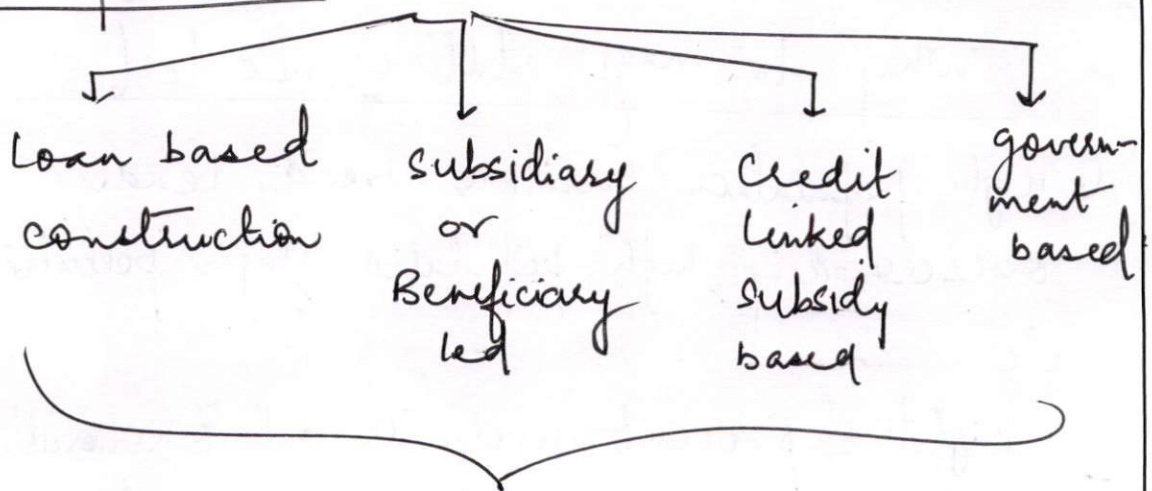 Loan based
construction
subsidiary
or
Beneficiary
led
Credit
Linked
subsidy
based
govern-
ment
based